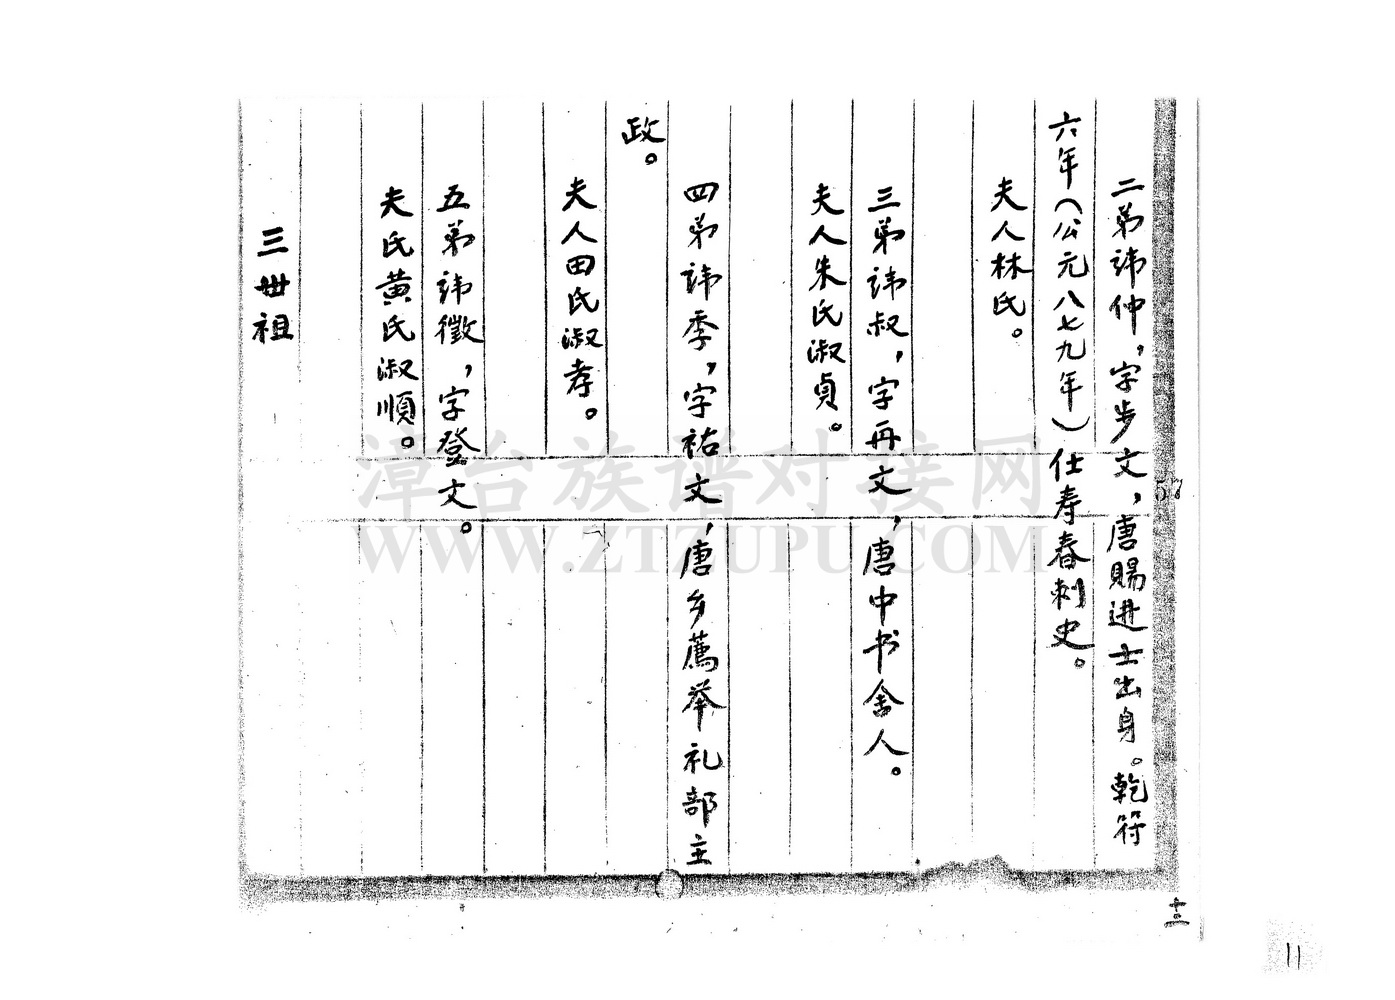 二弟諱仲，字步文，唐賜进士出身。乾符
六年（公元八七九年）仕寿春刺史。
夫人林氏。
三弟諱叔，字再文，唐中书舍人。
夫人朱氏淑貞。
四弟諱季，字祐文，唐乡薦举礼部主
政。
夫人田氏淑孝。
五弟諱徵，字登文。
夫氏黄氏淑順。
三世祖
57
十三
11
漳台族谱对接网
WWW.ZTZUPU.COM